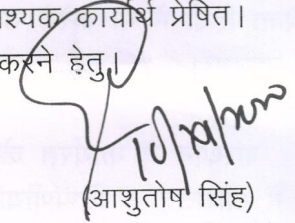 श्यक कार्यार्थ प्रेषित।
करने हेतु।
(आशुतोष सिंह)